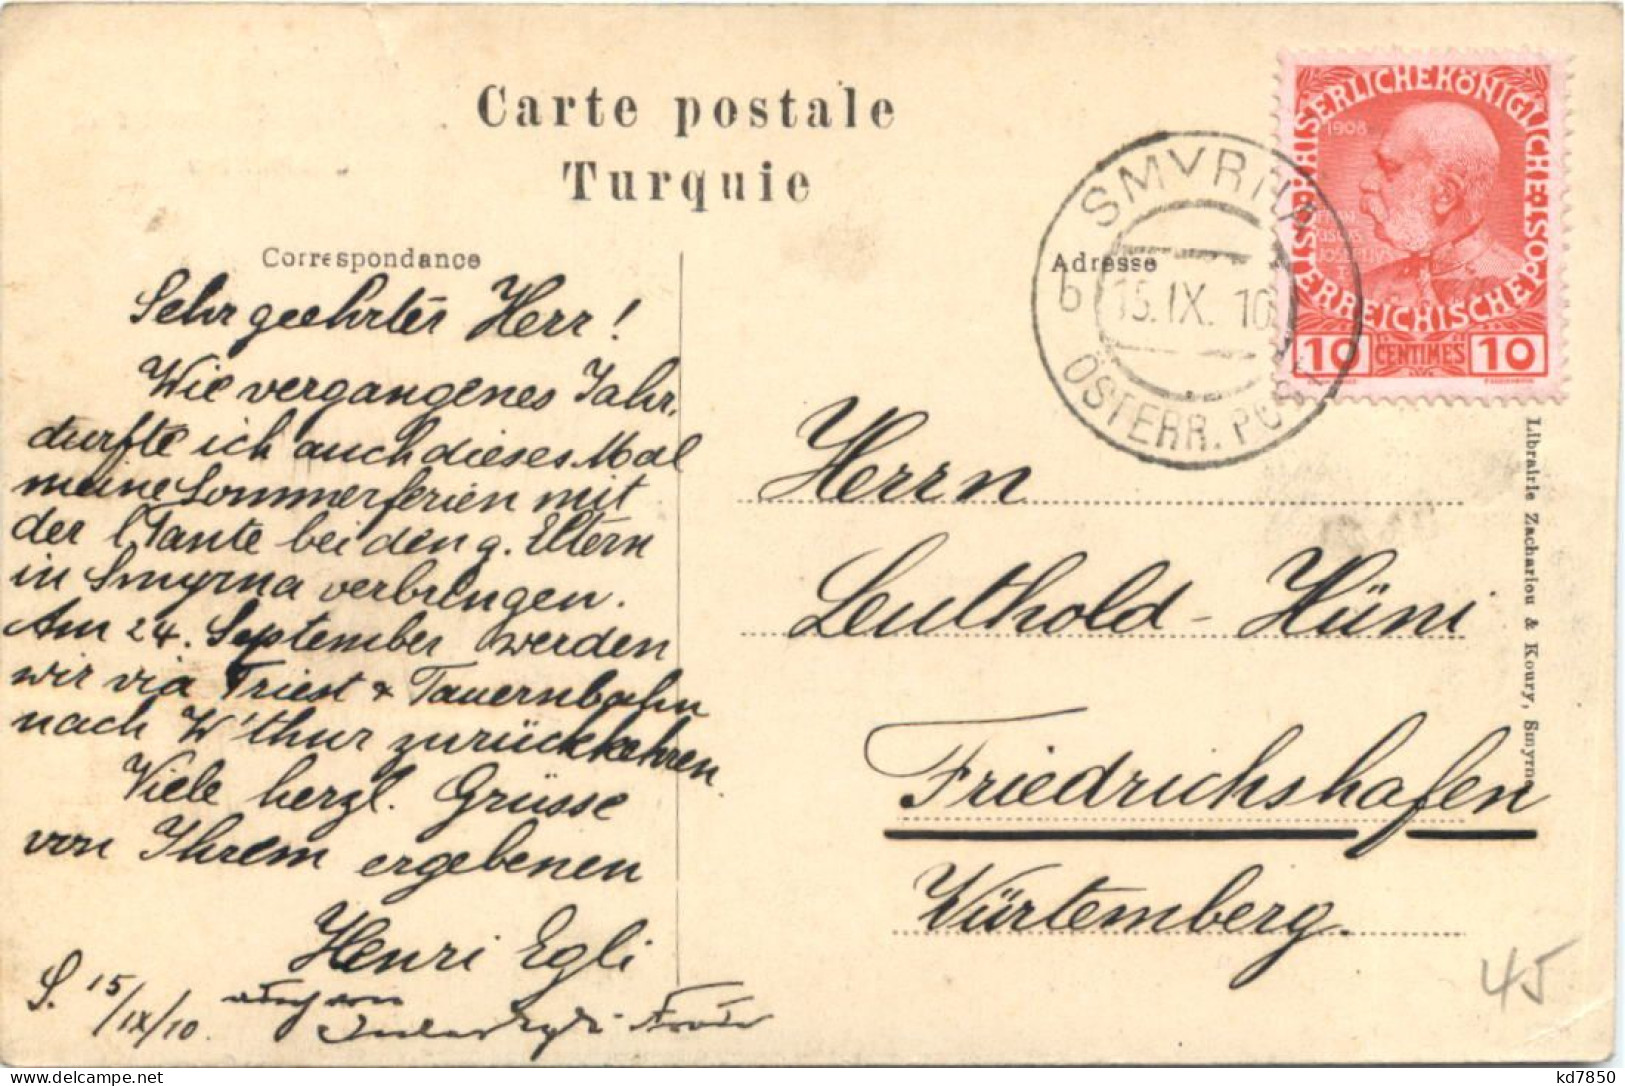 Carte postale
Turquie
Correspondance
Adresse
Sehr geehrter Herr!
Wie vergangenes Jahr,
durfte ich auch dieses Mal
meine Sommerferien mit
der l. Tante bei den g. Eltern
in Smyrna verbringen.
Am 24. September werden
wir via Triest & Tauernbahn
nach W'thur zurückkehren.
Viele herzl. Grüsse
von Ihrem ergebenen
Henri Egli
S. 15/IX/10.
auch von
SMYRNA
b 15.IX.10
ÖSTERR. POST
KAISERLICHE KÖNIGLICHE
ÖSTERREICHISCHE POST
1908
10 CENTIMES 10
Herrn
Leuthold-Hüni
Friedrichshafen
Würtemberg.
Librairie Zachariou & Koury, Smyrne
45
kd7850